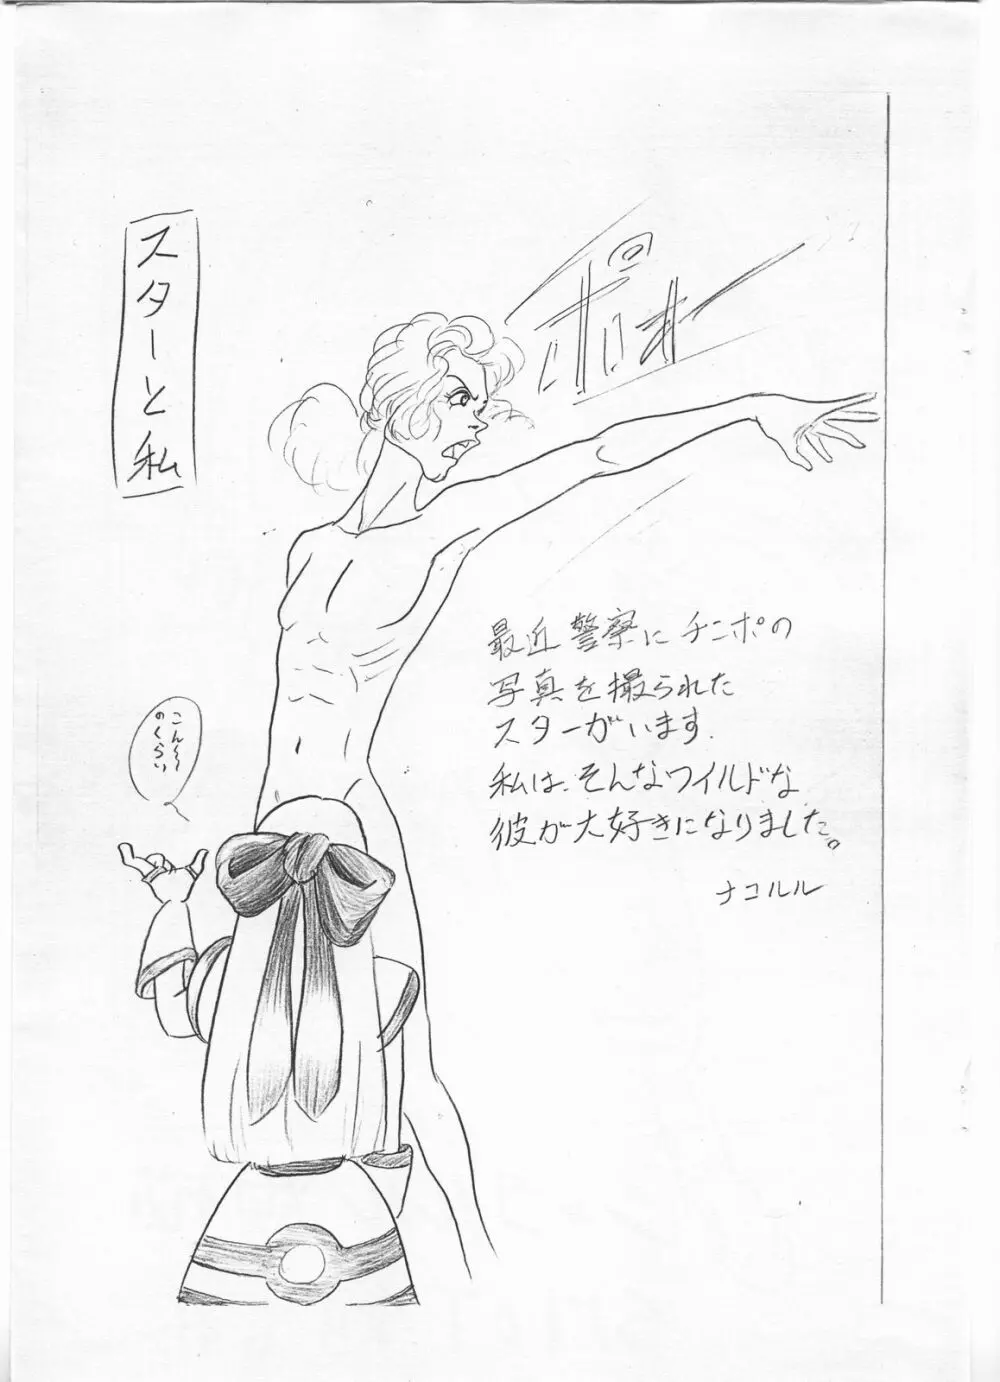 スターと私
最近警察にチンポの
写真を撮られた
スターがいます.
私は、そんなワイルドな
彼が大好きになりました。
ナコルル
こん〜〜
のくらい